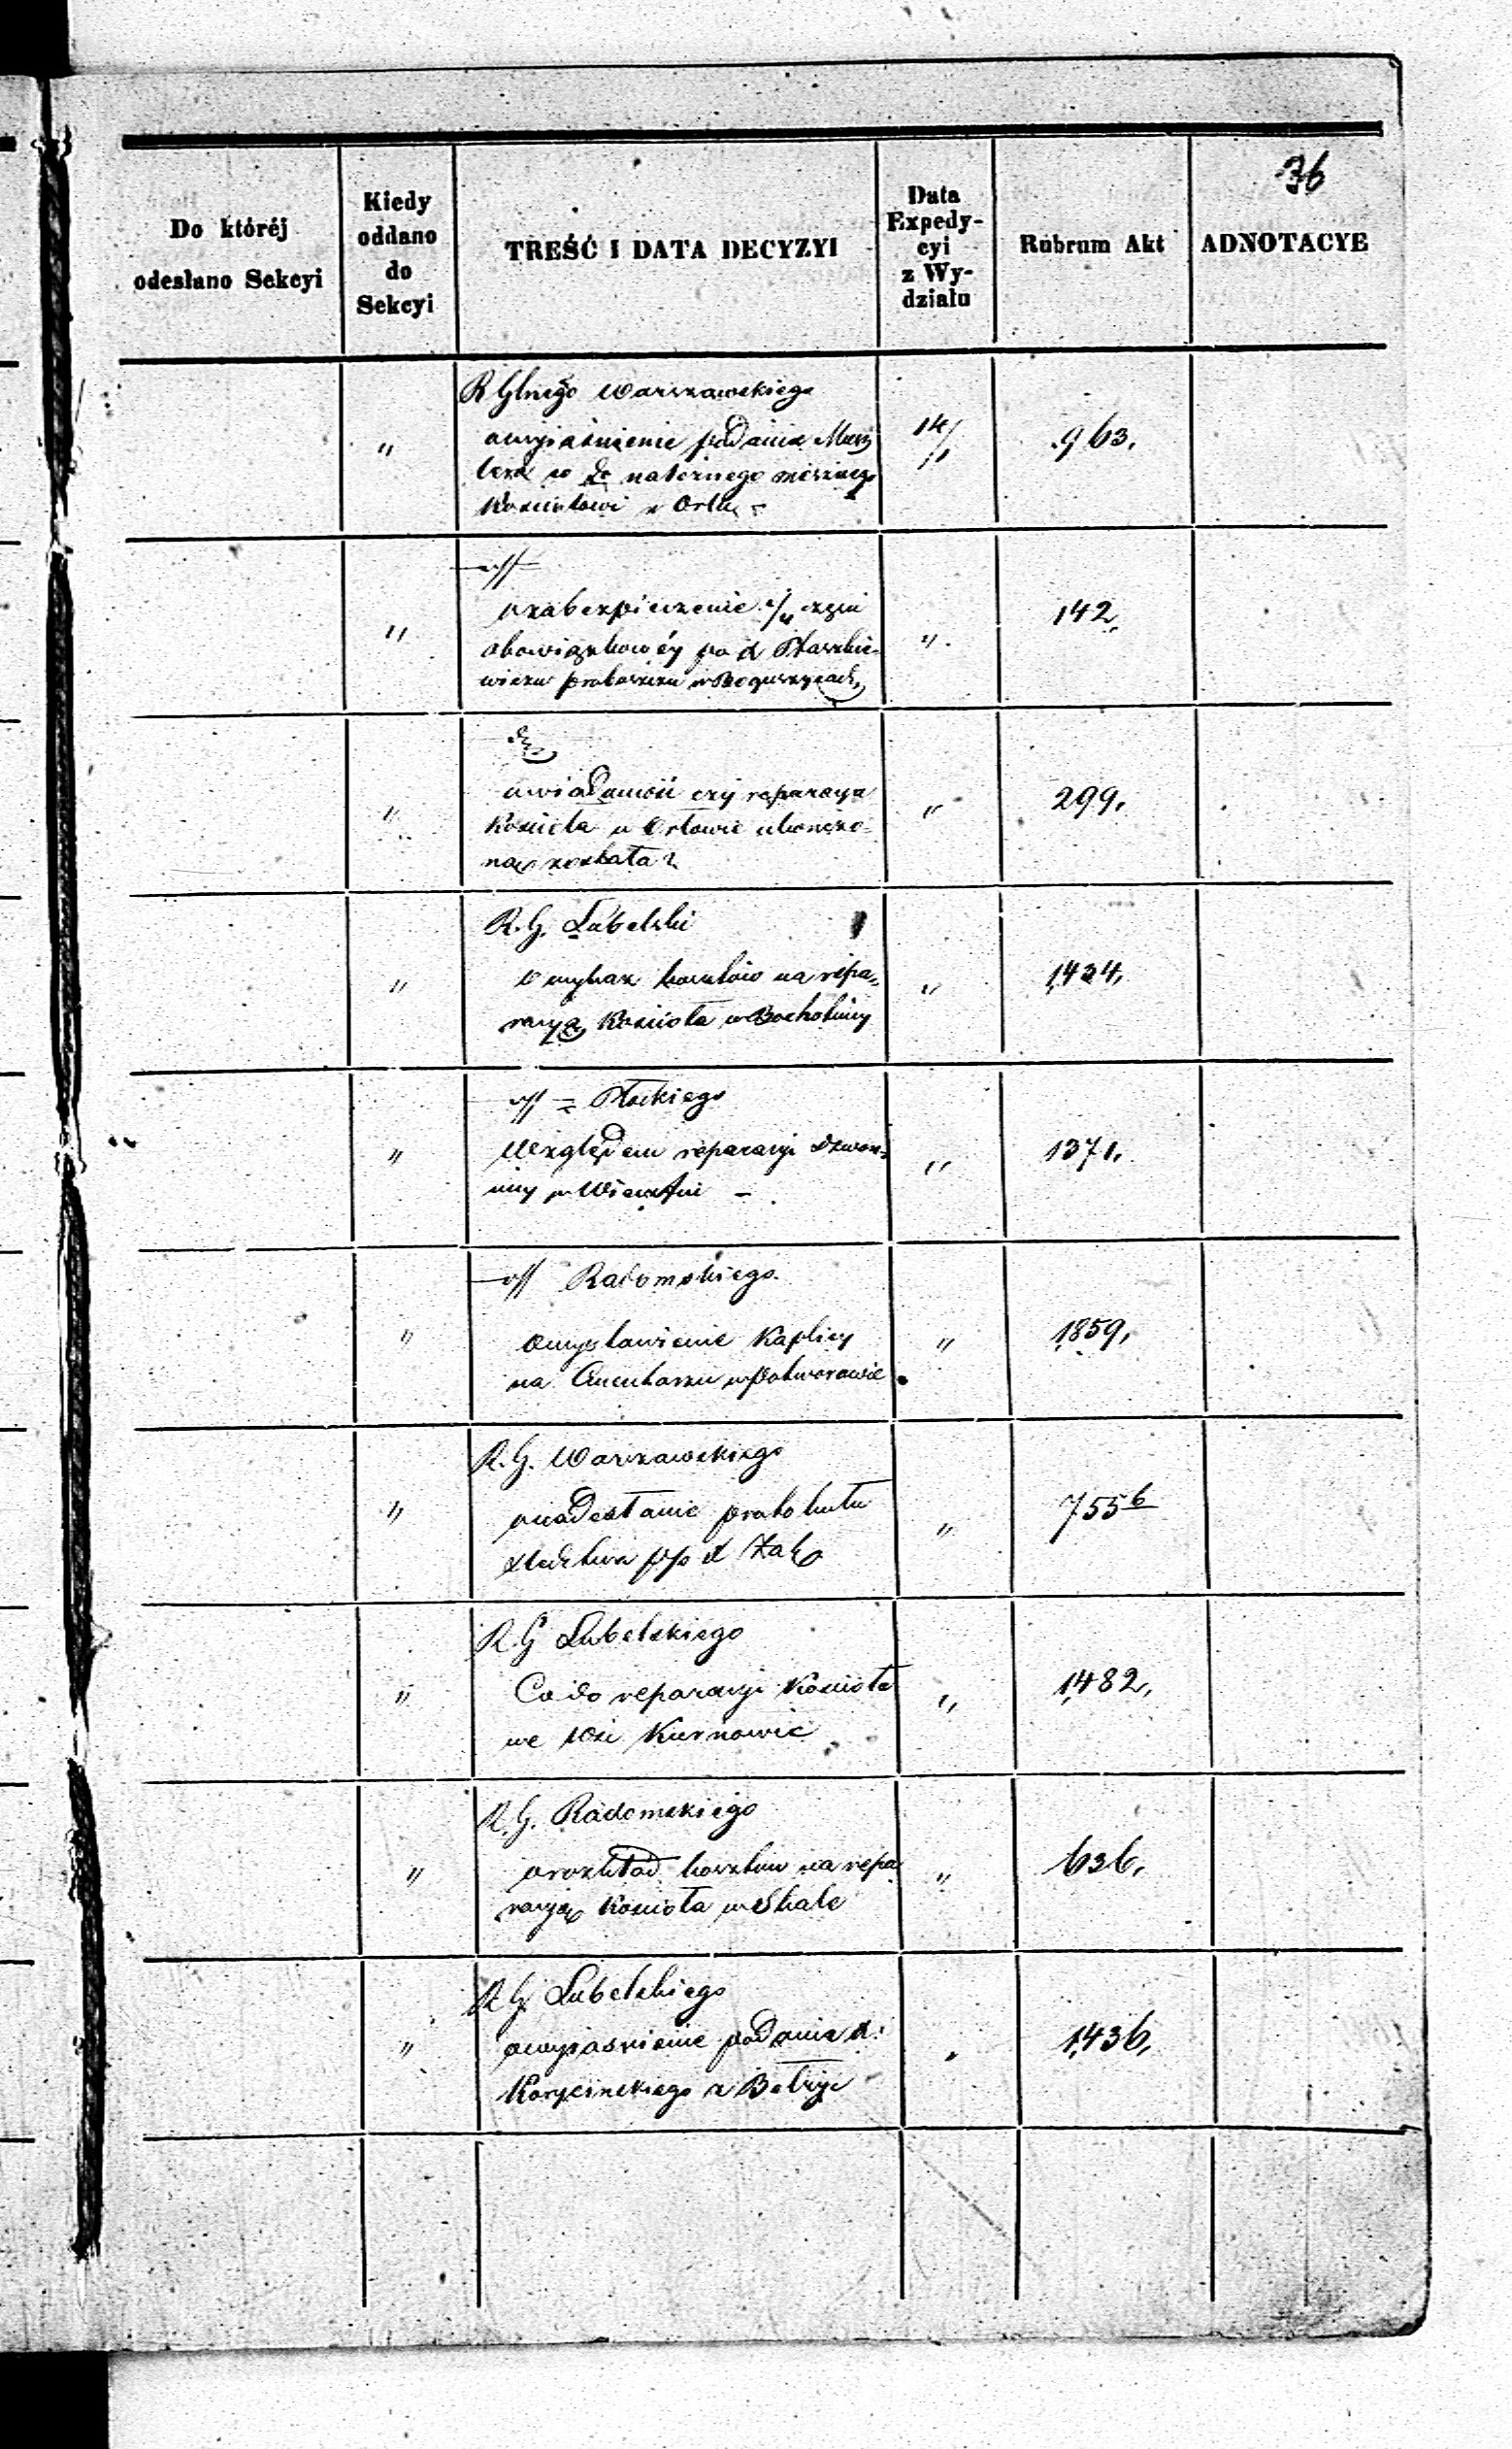 36
Do któréj
odesłano Sekcyi
Kiedy
oddano
do
Sekcyi
TREŚĆ I DATA DECYZYI
Data
Expedy-
cyi
z Wy-
działu
Rubrum Akt
ADNOTACYE
R Glnego Warszawskiego
owyiaśnienie podania
należnego
Kościołowi z
" 14/1 963.
ozabezpieczenie
obowiązkowéj po X Staszkie-
wiczu proboszczu w Boguszycach,
" " 142.
uwiadomić czy reparacya
Kościoła w Orłowie ukończo-
ną została?
" " 299.
R. G. Lubelski
o wykaz kosztów na repa-
racyą Kościoła w Bochotnicy
" " 1434.
Płockiego
Względem reparacyi Dzwon-
nicy w
" " 1371.
Radomskiego.
owystawienie Kaplicy
na Cmentarzu w Potworowie
" " 1859.
R. G. Warszawskiego
onadesłanie protokułu
śledztwa p/p X
" " 755 b
R. G Lubelskiego
Co do reparacyi Kościoła
we Wsi Kurnowie
" " 1482.
R. G. Radomskiego
orozkład kosztów na repa
racyą Kościoła w Skale
" " 636.
R G. Lubelskiego
owyiaśnienie podania X.
Korycińskiego z
" 1436.